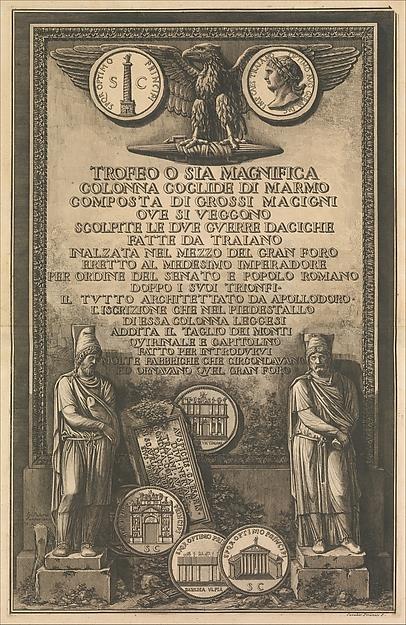 SPQR OPTIMO PRINCIPI
S C
TROFEO O SIA MAGNIFICA
COLONNA COCLIDE DI MARMO
COMPOSTA DI GROSSI MACIGNI
OVE SI VEGGONO
SCOLPITE LE DVE GVERRE DACICHE
FATTE DA TRAIANO
INALZATA NEL MEZZO DEL GRAN FORO
ERETTO AL MEDESIMO IMPERADORE
PER ORDINE DEL SENATO E POPOLO ROMANO
DOPPO I SUOI TRIONFI·
IL TVTTO ARCHITETTATO DA APOLLODORO·
L'ISCRIZIONE CHE NEL PIEDESTALLO
DI ESSA COLONNA LEGGESI
ADDITA IL TAGLIO DEI MONTI
QVIRINALE E CAPITOLINO
FATTO PER INTRODVRVI
MOLTE FABBRICHE CHE CIRCONDAVANO
ED ORNAVANO QVEL GRAN FORO
S C
SPQR OPTIMO PRI
BASILICA VLPIA
SPQR OPTIMO PRINCIPI
S C